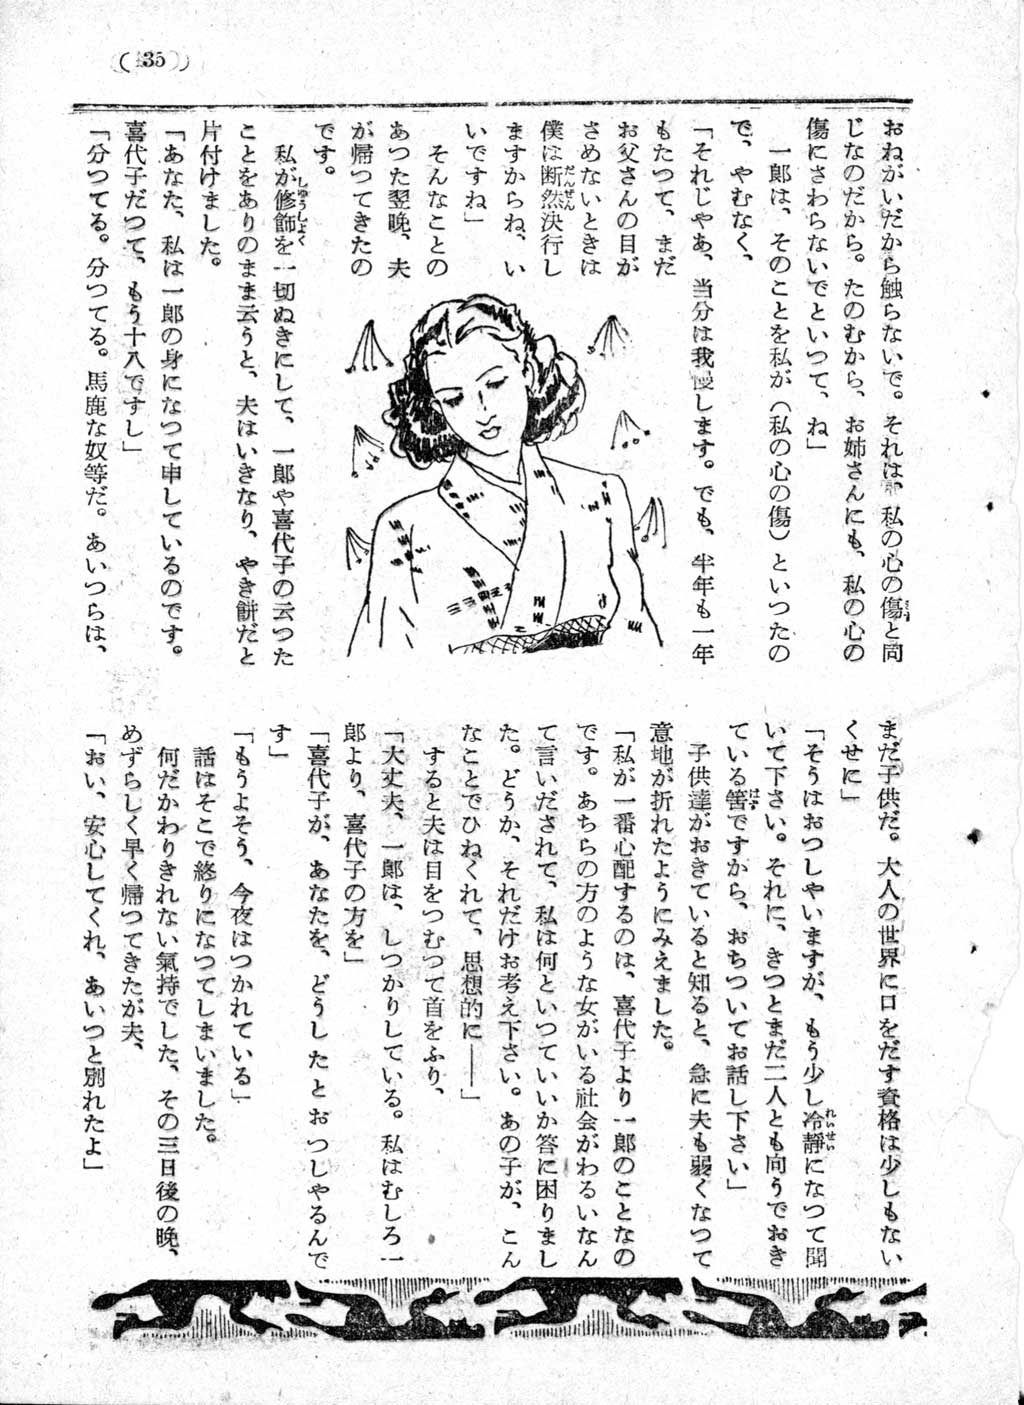 (35)
おねがいだから触らないで。それは、私の心の傷と同
じなのだから。たのむから、お姉さんにも、私の心の
傷にさわらないでといつて、ね」
一郎は、そのことを私が（私の心の傷）といつたの
で、やむなく、
「それじやあ、当分は我慢します。でも、半年も一年
もたつて、まだ
お父さんの目が
さめないときは
僕は断然決行し
ますからね、い
いですね」
そんなことの
あつた翌晩、夫
が帰つてきたの
です。
私が修飾を一切ぬきにして、一郎や喜代子の云つた
ことをありのまま云うと、夫はいきなり、やき餅だと
片付けました。
「あなた、私は一郎の身になつて申しているのです。
喜代子だつて、もう十八ですし」
「分つてる。分つてる。馬鹿な奴等だ。あいつらは、
まだ子供だ。大人の世界に口をだす資格は少しもない
くせに」
「そうはおつしやいますが、もう少し冷靜になつて聞
いて下さい。それに、きつとまだ二人とも向うでおき
ている筈ですから、おちついてお話し下さい」
子供達がおきていると知ると、急に夫も弱くなつて
意地が折れたようにみえました。
「私が一番心配するのは、喜代子より一郎のことなの
です。あちらの方のような女がいる社会がわるいなん
て言いだされて、私は何といつていいか答に困りまし
た。どうか、それだけお考え下さい。あの子が、こん
なことでひねくれて、思想的に――」
すると夫は目をつむつて首をふり、
「大丈夫、一郎は、しつかりしている。私はむしろ一
郎より、喜代子の方を」
「喜代子が、あなたを、どうしたとおつしやるんで
す」
「もうよそう、今夜はつかれている」
話はそこで終りになつてしまいました。
何だかわりきれない氣持でした、その三日後の晩、
めずらしく早く帰つてきたが夫、
「おい、安心してくれ、あいつと別れたよ」